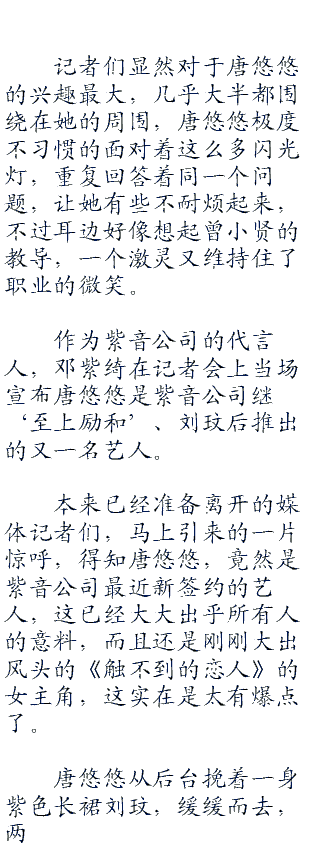 记者们显然对于唐悠悠
的兴趣最大，几乎大半都围
绕在她的周围，唐悠悠极度
不习惯的面对着这么多闪光
灯，重复回答着同一个问
题，让她有些不耐烦起来，
不过耳边好像想起曾小贤的
教导，一个激灵又维持住了
职业的微笑。
作为紫音公司的代言
人，邓紫绮在记者会上当场
宣布唐悠悠是紫音公司继
‘至上励和’、刘玟后推出
的又一名艺人。
本来已经准备离开的媒
体记者们，马上引来的一片
惊呼，得知唐悠悠，竟然是
紫音公司最近新签约的艺
人，这已经大大出乎所有人
的意料，而且还是刚刚大出
风头的《触不到的恋人》的
女主角，这实在是太有爆点
了。
唐悠悠从后台挽着一身
紫色长裙刘玟，缓缓而去，
两